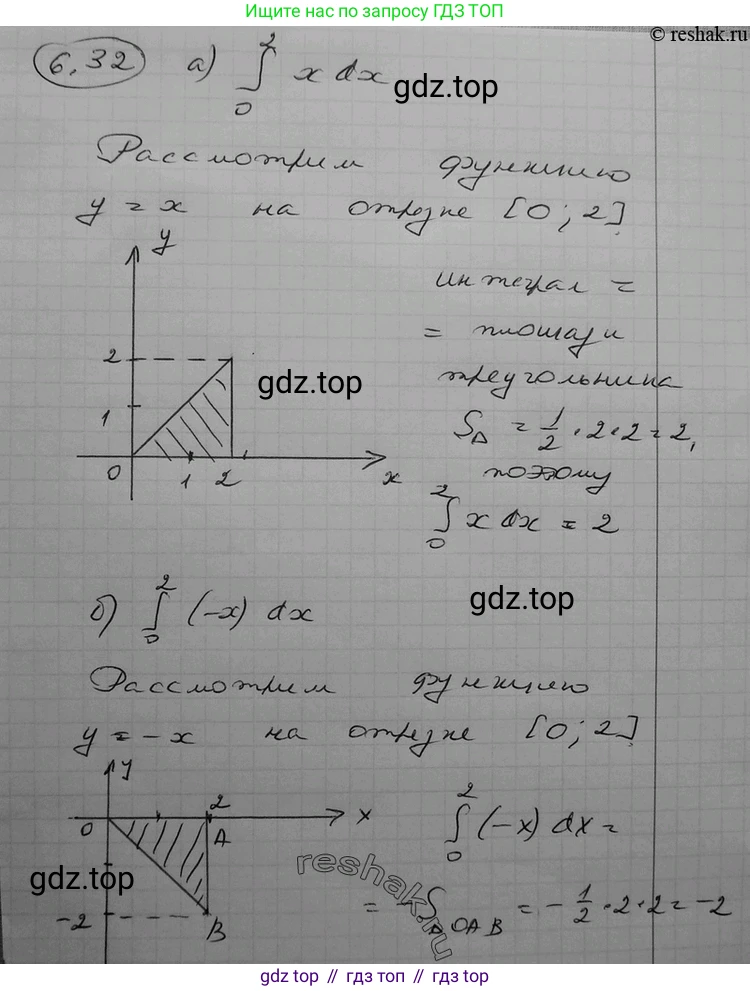 Ищите нас по запросу ГДЗ ТОП
© reshak.ru
6,32 а) ∫₀² x dx
gdz.top
Рассмотрим функцию
y = x на отрезке [0; 2].
y
интеграл =
= площади
треугольника
S△ = 1/2 · 2 · 2 = 2,
поэтому
∫₀² x dx = 2
2
gdz.top
1
0 1 2 x
б) ∫₀² (-x) dx
gdz.top
Рассмотрим функцию
y = -x на отрезке [0; 2].
y
0 2 x
A
∫₀² (-x) dx =
reshak.ru
gdz.top
-2 B
= -S△OAB = -1/2 · 2 · 2 = -2
gdz top // гдз топ // гдз top